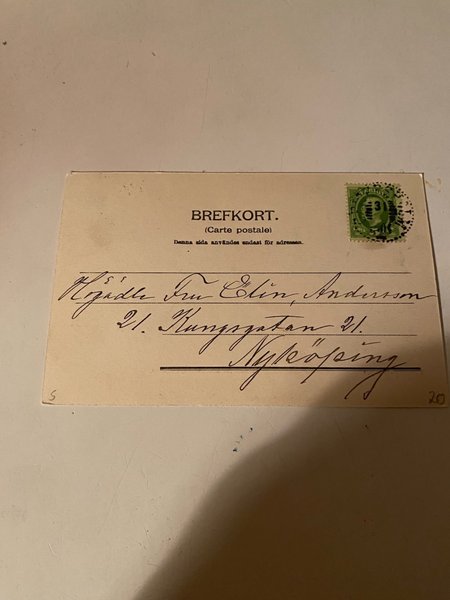 BREFKORT.
(Carte postale)
Denna sida användes endast för adressen.
Fru Elin, Andersson
21. Kungsgatan 21.
Nyköping
S
20